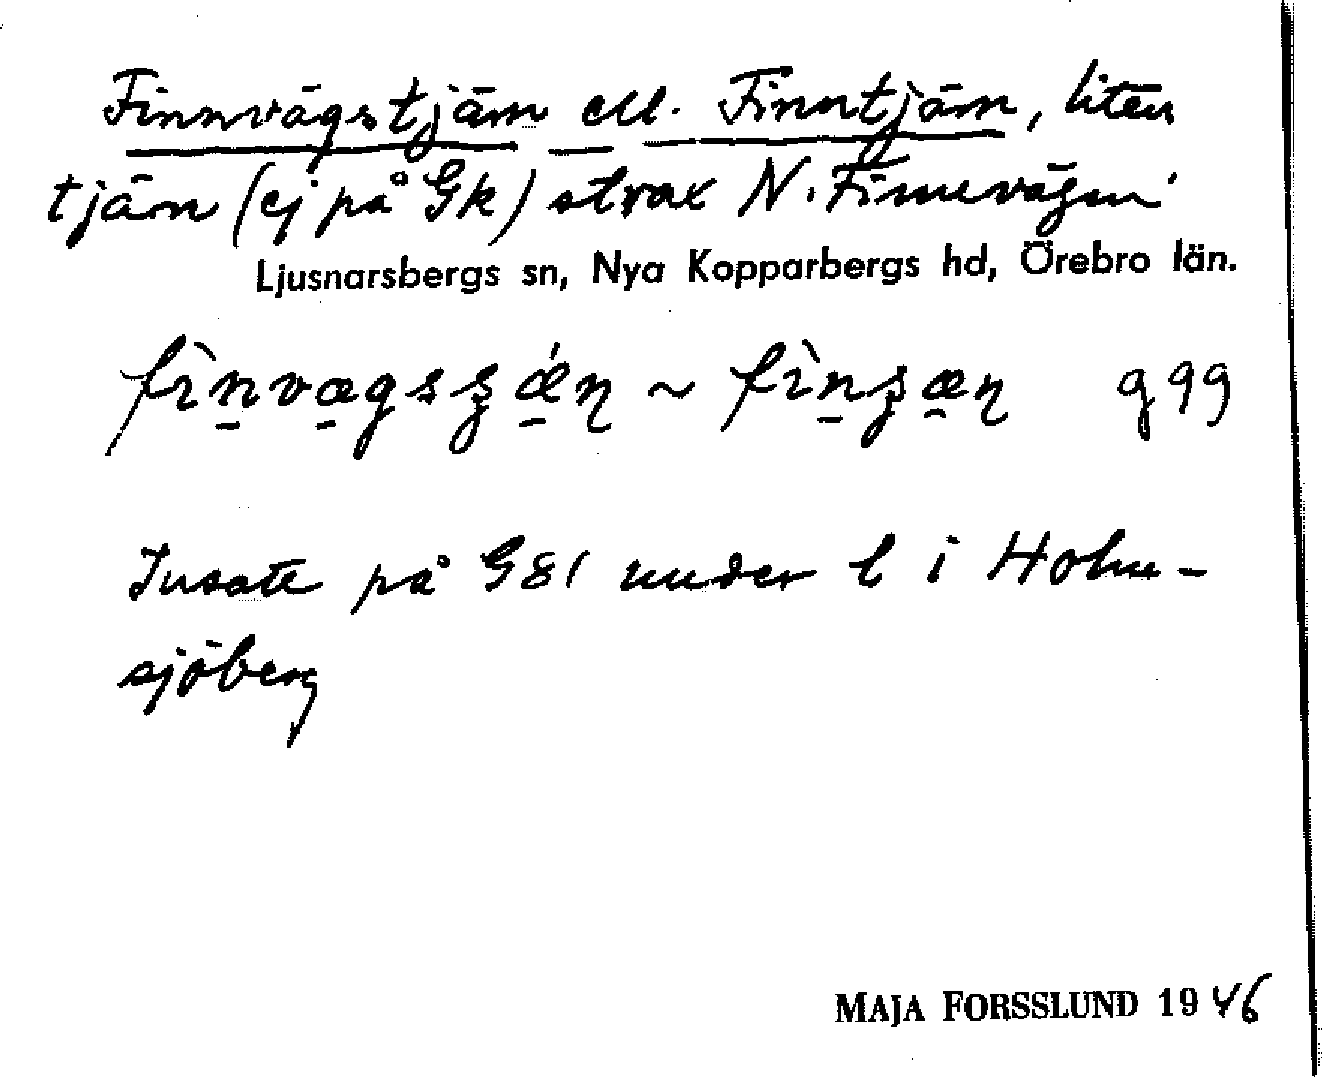 Finnvägstjärn ell. Finntjärn, liten
tjärn (ej på Gk) strax N. Finnvägen
Ljusnarsbergs sn, Nya Kopparbergs hd, Örebro län.
g 99
Insatt på G81 under l i Holm-
sjöberg
MAJA FORSSLUND 1946